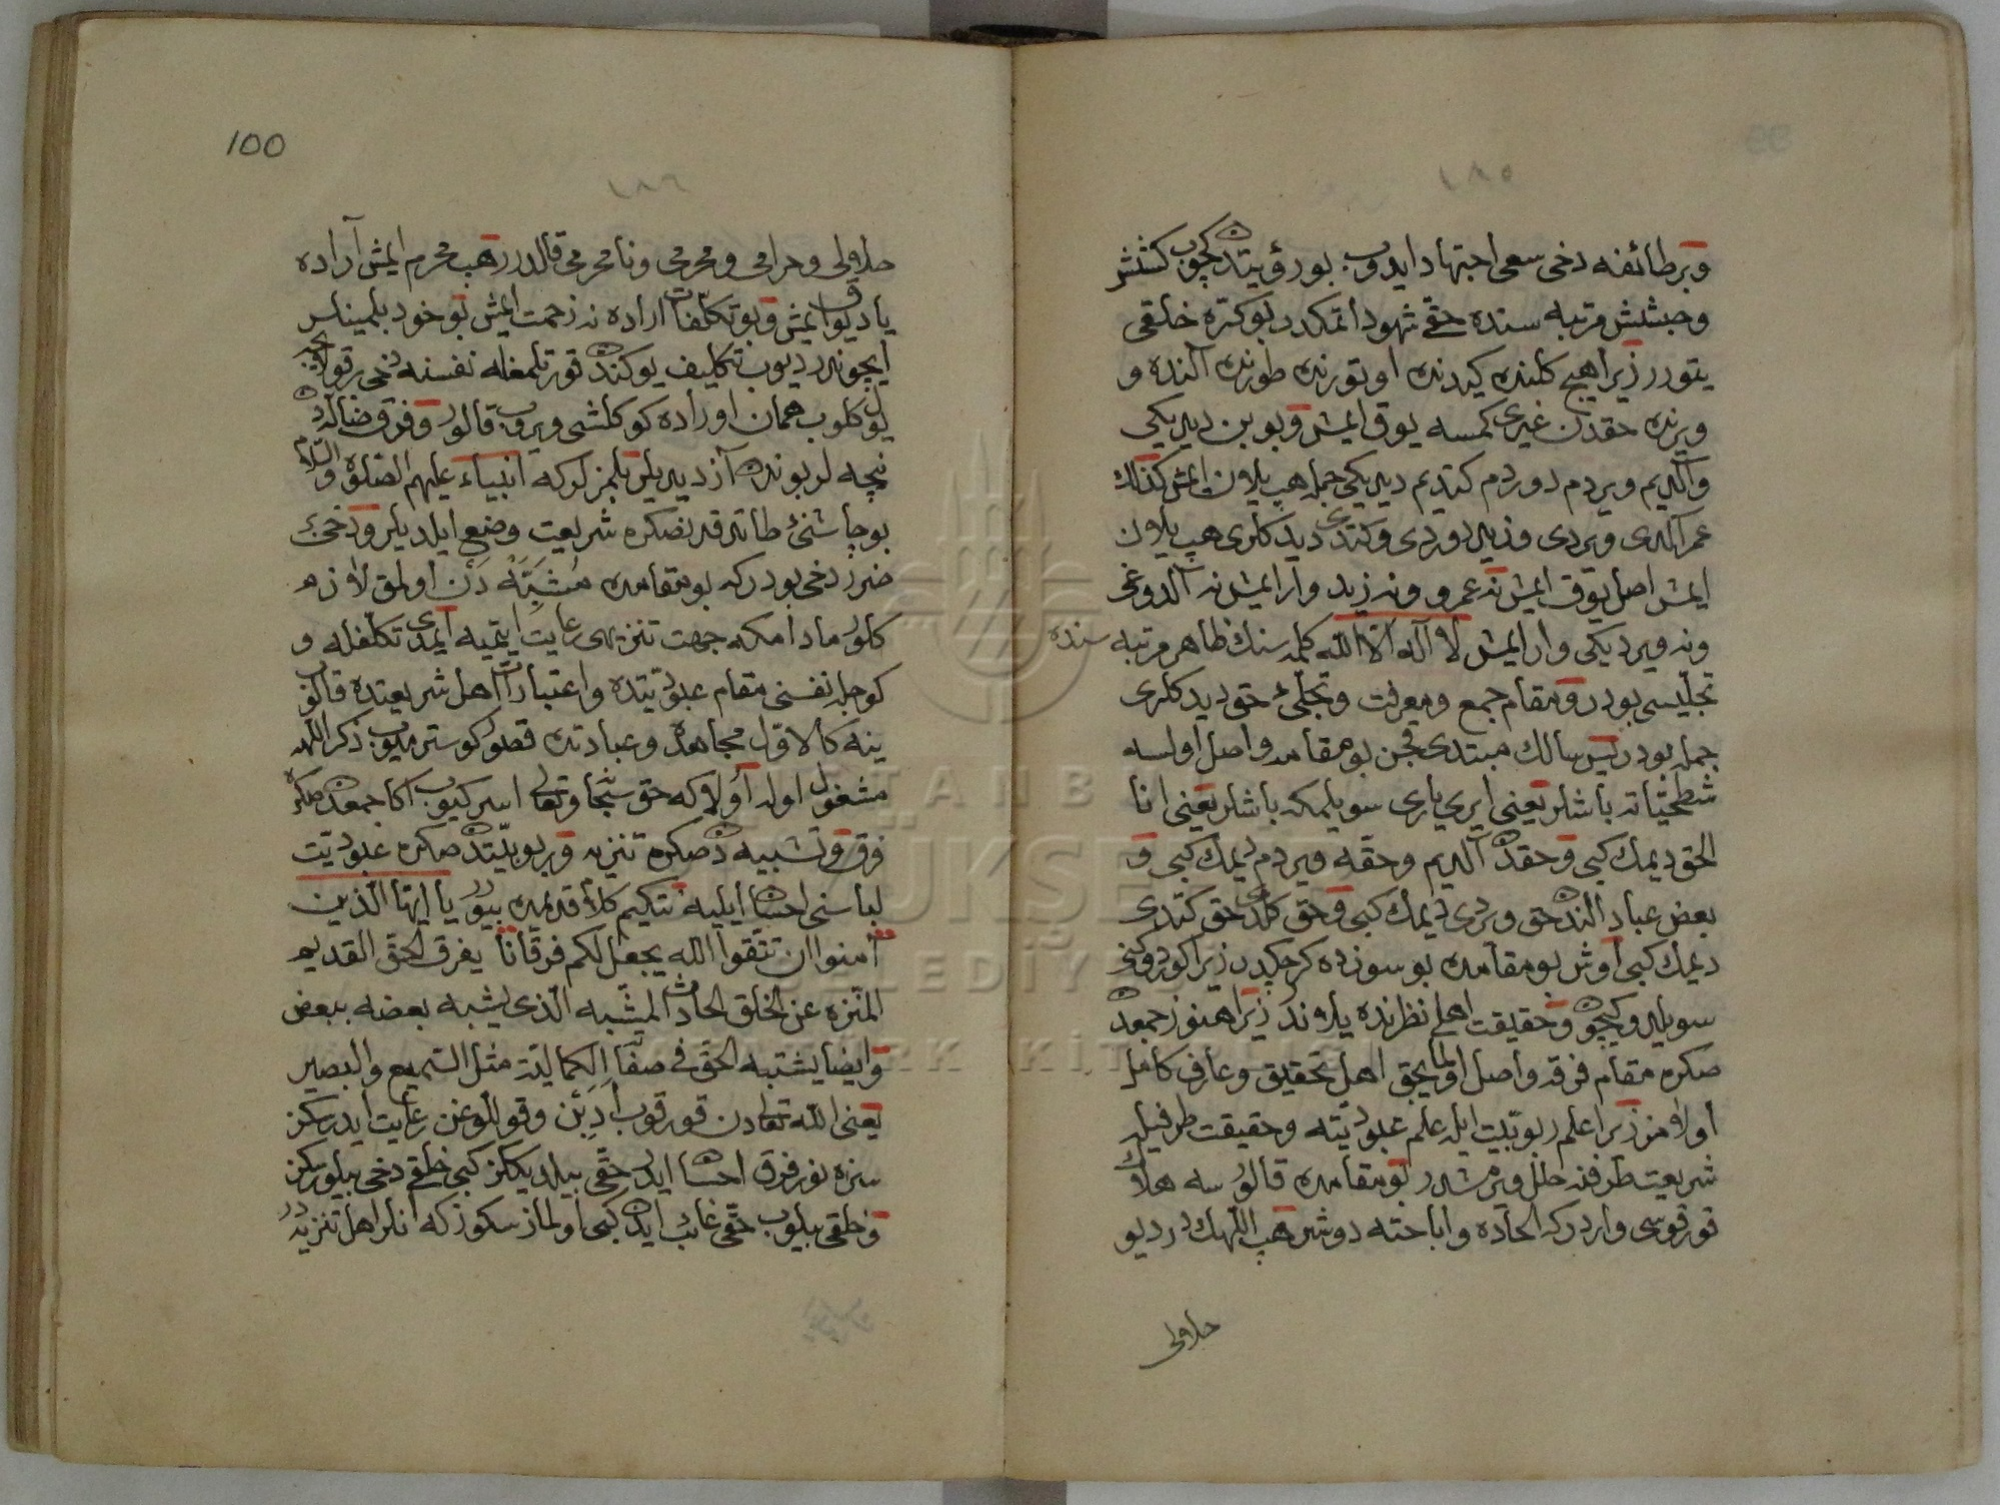 ١٨٥
وبر طائفه دخی سعی اجتهاد ایدوب بو رؤیتدن کچوب کنش
وجنبش مرتبه سنده حقی شهود اتمکدر بو کره خلقی
یتورر زیرا هیچ کلنده کیدنده اوتورنده طورنده آلنده و
ویرنده حقدن غیری کمسه یوق ایمش وبو بن دیدیکی
والدیم ویردم دوردم کتدیم دیدیکی جمله هپ یلان ایمش کذلك
عمر آلدی ویردی وزید دوردی وکتدی دیدکلری هپ یلان
ایمش اصل یوق ایمش نه عمرو ونه زید وار ایمش نه آلدوغی
ونه ویردیکی وار ایمش لا اله الا الله کلمه سنك ظاهر مرتبه سنده
تجلیسی بودر ومقام جمع ومعرفت وتجلیٔ حق دیدکلری
جمله بودر پس سالك مبتدی قچن بو مقامه واصل اولسه
شطحیاته باشلر یعنی ایری یاری سویلمکه باشلر یعنی انا
الحق دیمك کبی وحقدن آلدیم وحقه ویردم دیمك کبی و
بعض عباد الندن حق ویردی دیمك کبی وحق کلدی حق کتدی
دیمك کبی اوش بو مقامده بو سوزده کرچکدر زیرا کوردوکنی
سویلر وکچوب وحقیقت اهلی نظرنده یلاندر زیرا هنوز جمعدن
صکره مقام فرقه واصل اولمایجق اهل تحقیق وعارف کامل
اولامز زیرا علم ربوبیت ایله علم عبودیته وحقیقت طرفیله
شریعت طرفنه خلل ویرمشدر بو مقامده قالور سه هلاك
قورقوسی واردرکه الحاده واباحته دوشر هپ اللهك در دیو
حلالی
100
١٨٦
حلالی وحرامی ومحرمی ونامحرمی قالدرر هپ محرم ایمش آراده
یاد یوق ایمش وبو تکلفات اراده نه زحمت ایمش بو خود بلمینلر
ایچوندر دیوب تکالیف یوکندن قورتلمغله نفسنه دخی بر قولای
یول کلوب همان اوراده کوکلشی ویروب قالور وفرق ضالده دن
نیچه لر بوندن آزدیلر بلمزلر که انبیاء علیهم الصلوة والسلام
بو چاشنئ طاتدقدنصکره شریعت وضع ایلدیلر ودخی
ضرر دخی بودر که بو مقامده مشبهه دن اولمق لازم
کلور مادامکه جهت تنزیهی رعایت ایتمیه ایمدی تکلفله و
کوجله نفسنی مقام عبودیتده واعتبارات اهل شریعتده قالوب
ینه کالاول مجاهده وعبادتده قصور کوسترمیوب ذکر الله
مشغول اوله اولاکه حق سبحانه وتعالی اسرکیوب اکا جمعدن صکره
فرق وتشبیه دن صکره تنزیه وربوبیتدن صکره عبودیت
لباسنی احسان ایلیه نتکیم کلام قدیمده بیورر یا ایها الذین
آمنوا ان تتقوا الله یجعل لکم فرقانا یفرق الحق القدیم
المنزه عن الخلق الحادث المشبه الذی یشبه بعضه ببعض
وایضا یشتبه الحق فی صفات الکمالیة مثل السمیع والبصیر
یعنی الله تعالی دن قورقوب ادبن وقوللوغن رعایت ایدرسکز
سزه نور فرق احسان ایدر حقی بیلدیککز کبی خلقی دخی بیلورسکز
وخلقی بیلوب حقی غائب ایدن کبی اولمازسکوز که انلر اهل تنزیهدر